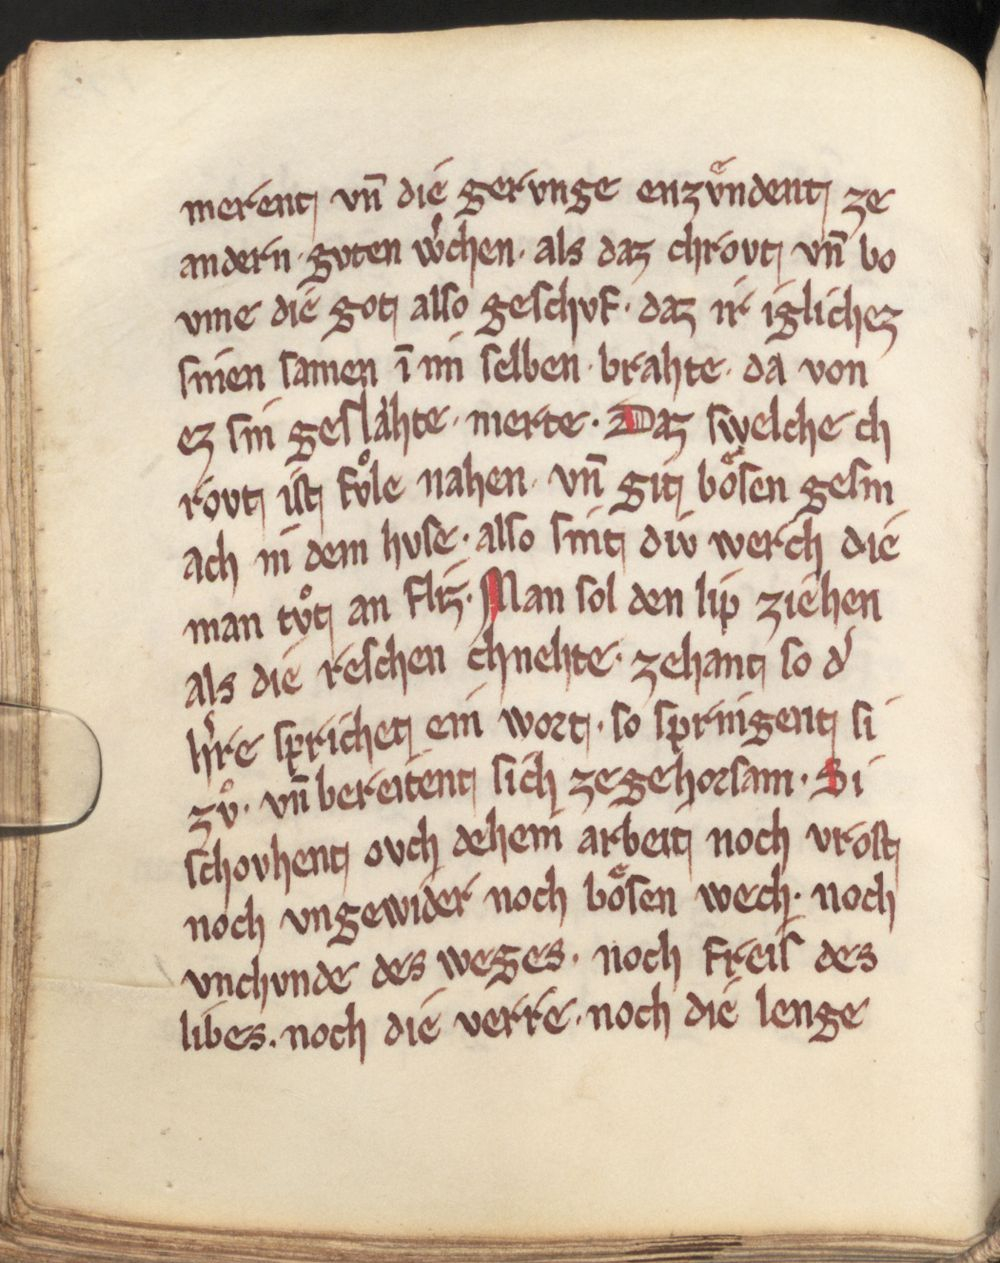 merent vn̄ die gervnge enzvͤndent ze
andern · gvten w̓chen · als daz chrovt vn̄ bo
vme die got also geschvf · daz ir iglichez
sinen samen ī im selben · brahte · da von
ez sin geslæhte · merte · Daz swelche ch
rovt ist fvͦle nahen · vn̄ git boͤsen gesm
ach in dem hvse · also sint div werch die
man tvͦt an fliz · Man sol den lip ziehen
als die reschen chnehte · zehant so d̓
h̓re sprichet ein wort · so springent si
zvͦ · vn̄ bereitent sich zegehorsam · Si
schovhent ovch dehein arbeit noch vrost
noch vngewider noch boͤsen wech · noch
vnchvnde des weges · noch freis des
libes · noch die verre · noch die lenge